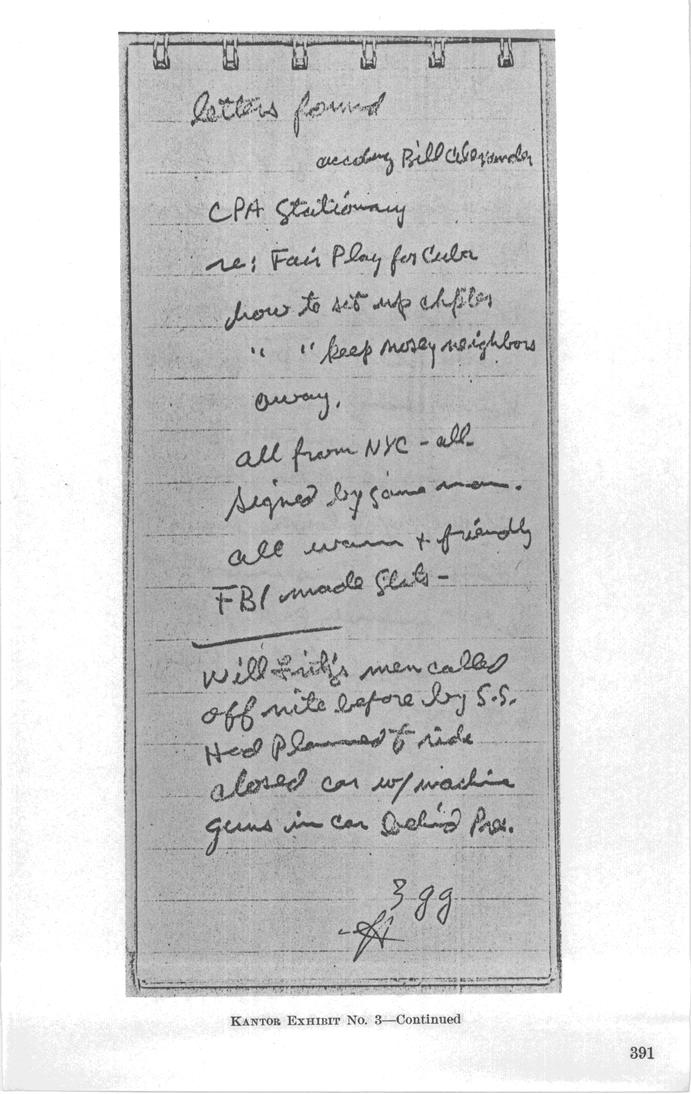 letters found
according Bill Alexander
CPA Stationary
re: Fair Play for Cuba
how to set up chptes
" " keep nosey neighbors
away.
all from NYC - all
signed by same man.
all warm + friendly
FBI made Stats -
Will Fritz's men called
off nite before by S.S.
Had planned to ride
closed car w/machine
guns in car behind Pres.
3 gg
KANTOR EXHIBIT No. 3—Continued
391